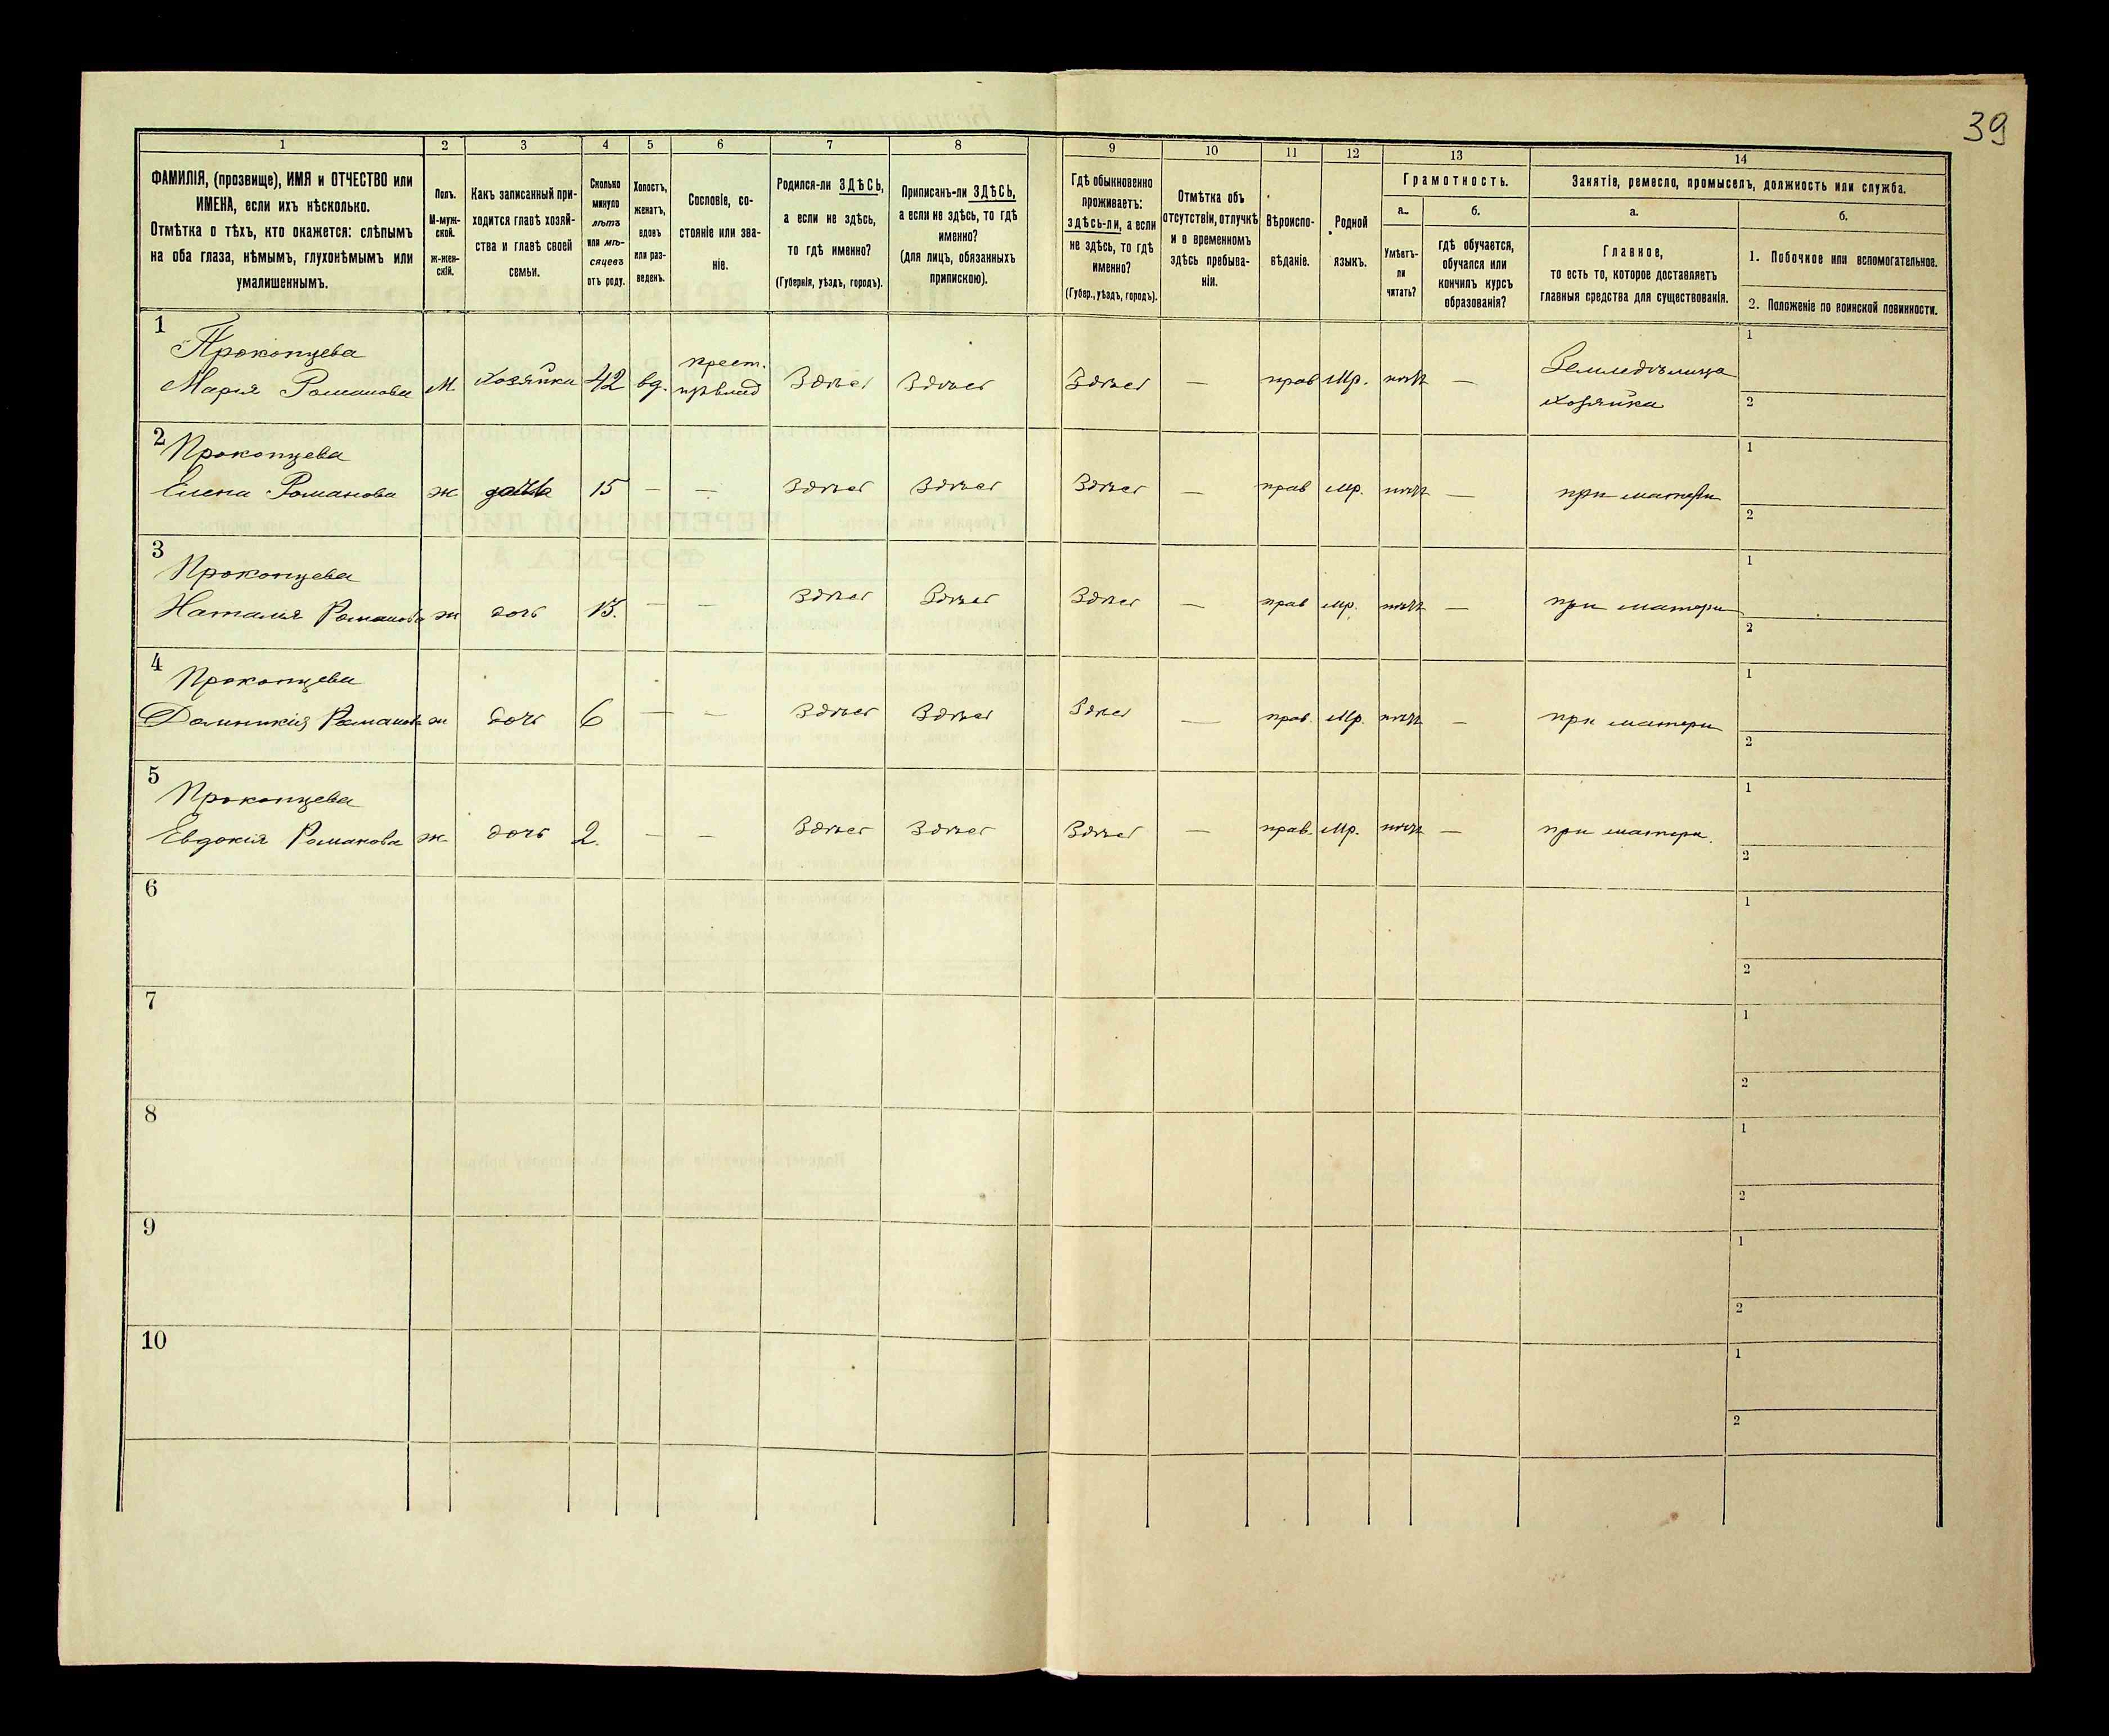 39
1
2
3
4
5
6
7
8
9
10
11
12
13
14
ФАМИЛІЯ, (прозвище), ИМЯ и ОТЧЕСТВО или
ИМЕНА, если ихъ нѣсколько.
Отмѣтка о тѣхъ, кто окажется: слѣпымъ
на оба глаза, нѣмымъ, глухонѣмымъ или
умалишеннымъ.
Полъ.
М-муж-
ской.
ж-жен-
скій.
Какъ записанный при-
ходится главѣ хозяй-
ства и главѣ своей
семьи.
Сколько
минуло
лѣтъ
или мѣ-
сяцевъ
отъ роду.
Холостъ,
женатъ,
вдовъ
или раз-
веденъ.
Сословіе, со-
стояніе или зва-
ніе.
Родился-ли ЗДѢСЬ,
а если не здѣсь,
то гдѣ именно?
(Губернія, уѣздъ, городъ).
Приписанъ-ли ЗДѢСЬ,
а если не здѣсь, то гдѣ
именно?
(для лицъ, обязанныхъ
припискою).
Гдѣ обыкновенно
проживаетъ:
здѣсь-ли, а если
не здѣсь, то гдѣ
именно?
(Губер., уѣздъ, городъ).
Отмѣтка объ
отсутствіи, отлучкѣ
и в временномъ
здѣсь пребыва-
ніи.
Вѣроиспо-
вѣданіе.
Родной
языкъ.
Грамотность.
а.
Умѣетъ-
ли
читать?
б.
гдѣ обучается,
обучался или
кончилъ курсъ
образованія?
Занятіе, ремесло, промыселъ, должность или служба.
а.
Главное,
то есть то, которое доставляетъ
главныя средства для существованія.
б.
1. Побочное или вспомогательное.
2. Положеніе по воинской повинности.
1
Прокопцева
Марія Романова М. Хозяйка 42 вд. крест. Здѣсь Здѣсь Здѣсь — прав Мр. нѣтъ — Земледѣлица
хозяйка
1
2
2
Прокопцева
Елена Романова ж дочь 15 — — Здѣсь Здѣсь Здѣсь — прав Мр. нѣтъ — при матери
1
2
3
Прокопцева
Наталія Романова ж дочь 13. — — Здѣсь Здѣсь Здѣсь — прав Мр. нѣтъ — при матери
1
2
4
Прокопцева
Доминикія Романова ж дочь 6 — — Здѣсь Здѣсь Здѣсь — прав. Мр. нѣтъ — при матери
1
2
5
Прокопцева
Евдокія Романова ж дочь 2. — — Здѣсь Здѣсь Здѣсь — прав. Мр. нѣтъ — при матери.
1
2
6
1
2
7
1
2
8
1
2
9
1
2
10
1
2